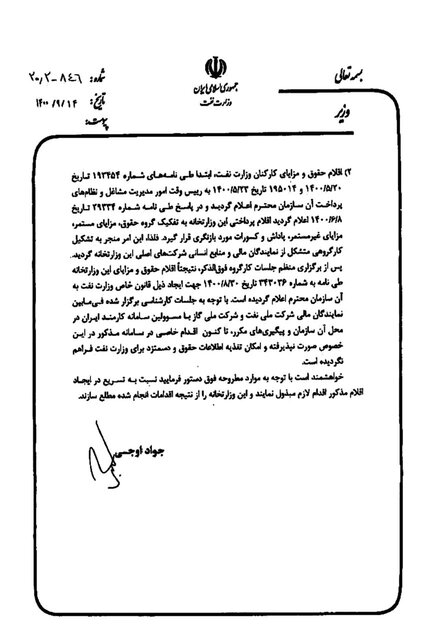 بسمه تعالی
جمهوری اسلامی ایران
وزارت نفت
وزیر
شماره: ۸۴۶-۲۰/۲
تاریخ: ۱۴۰۰/۹/۱۴
پیوست:
۲) اقلام حقوق و مزایای کارکنان وزارت نفت، ابتدا طی نامه‌های شماره ۱۹۳۴۵۴ تاریخ
۱۴۰۰/۵/۲۰ و ۱۹۵۰۱۴ تاریخ ۱۴۰۰/۵/۲۳ به رییس وقت امور مدیریت مشاغل و نظام‌های
پرداخت آن سازمان محترم اعلام گردید و در پاسخ طی نامه شماره ۲۹۳۳۴ تاریخ
۱۴۰۰/۶/۸ اعلام گردید اقلام پرداختی این وزارتخانه به تفکیک گروه حقوق، مزایای مستمر،
مزایای غیرمستمر، پاداش و کسورات مورد بازنگری قرار گیرد. فلذا، این امر منجر به تشکیل
کارگروهی متشکل از نمایندگان مالی و منابع انسانی شرکت‌های اصلی این وزارتخانه گردید.
پس از برگزاری منظم جلسات کارگروه فوق‌الذکر، نتیجتاً اقلام حقوق و مزایای این وزارتخانه
طی نامه به شماره ۳۴۳۰۳۶ تاریخ ۱۴۰۰/۸/۳۰ جهت ایجاد ذیل قانون خاص وزارت نفت به
آن سازمان محترم اعلام گردیده است. با توجه به جلسات کارشناسی برگزار شده فی‌مابین
نمایندگان مالی شرکت ملی نفت و شرکت ملی گاز با مسوولین سامانه کارمند ایران در
محل آن سازمان و پیگیری‌های مکرر، تاکنون اقدام خاصی در سامانه مذکور در این
خصوص صورت نپذیرفته و امکان تغذیه اطلاعات حقوق و دستمزد برای وزارت نفت فراهم
نگردیده است.
خواهشمند است با توجه به موارد مطروحه فوق دستور فرمایید نسبت به تسریع در ایجاد
اقلام مذکور اقدام لازم مبذول نمایند و این وزارتخانه را از نتیجه اقدامات انجام شده مطلع سازند.
جواد اوجی